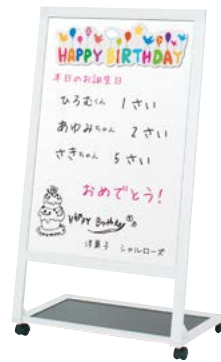 HAPPY BIRTHDAY
本日のお誕生日
ひろむくん 1さい
あゆみちゃん 2さい
さきちゃん 5さい
おめでとう!
Happy Birthday
洋菓子 シャルローズ